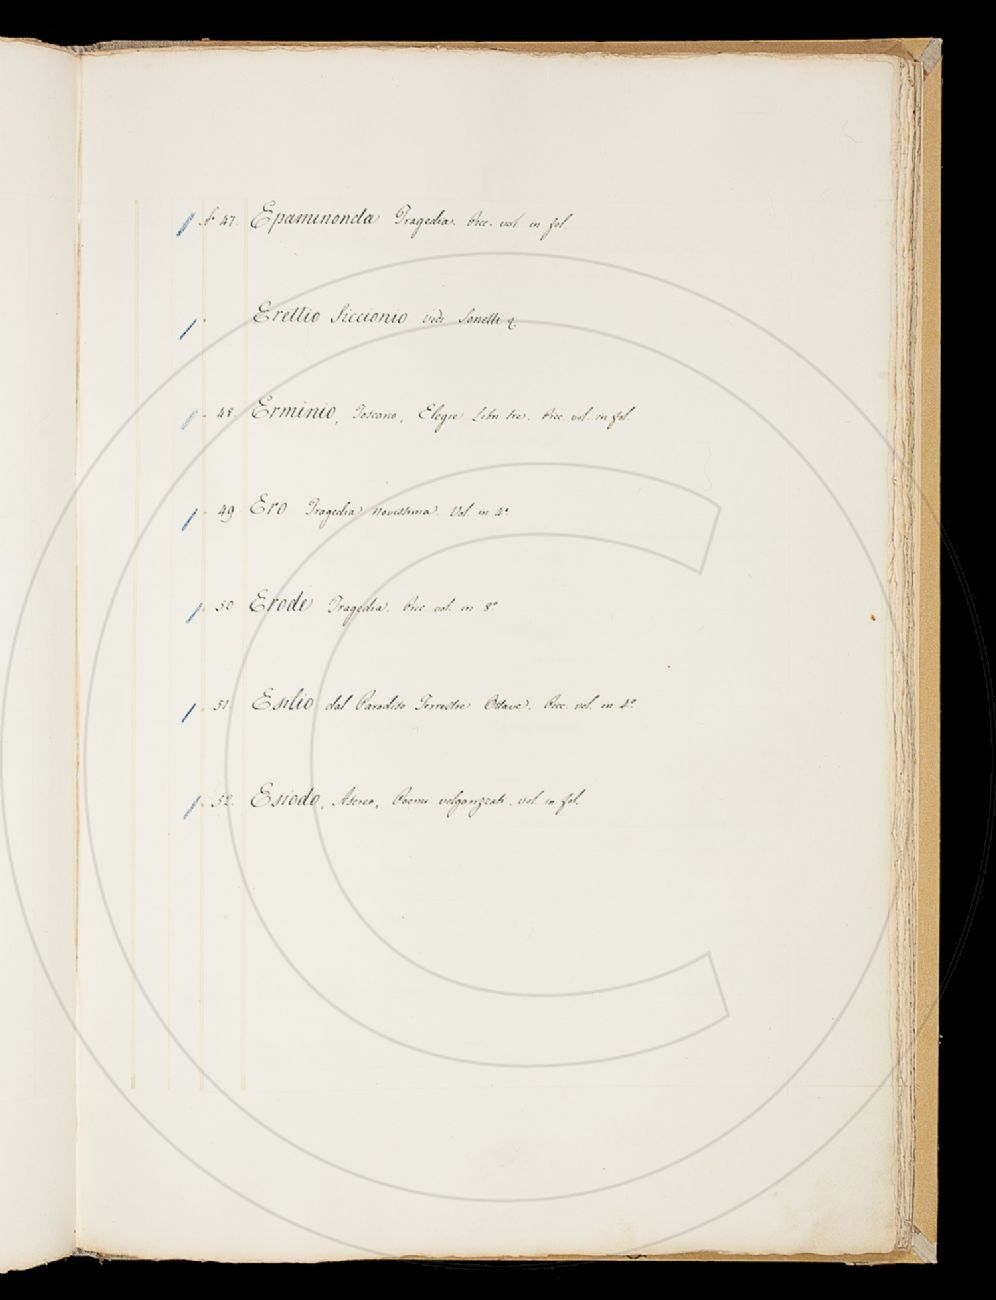 N° 47. Epaminonda Tragedia. Picc. vol. in fol.
Erettio Siccionio vedi Sonetti
48. Erminio, Toscano, Elegie Libri tre. Picc. vol. in fol.
49 Ero Tragedia novissima. Vol. in 4°
50 Erode Tragedia. Picc. vol. in 8°
51. Esilio dal Paradiso Terrestre Ottave. Picc. vol. in 4°
52. Esiodo, Ascreo, Poemi volgarizzati. vol. in fol.